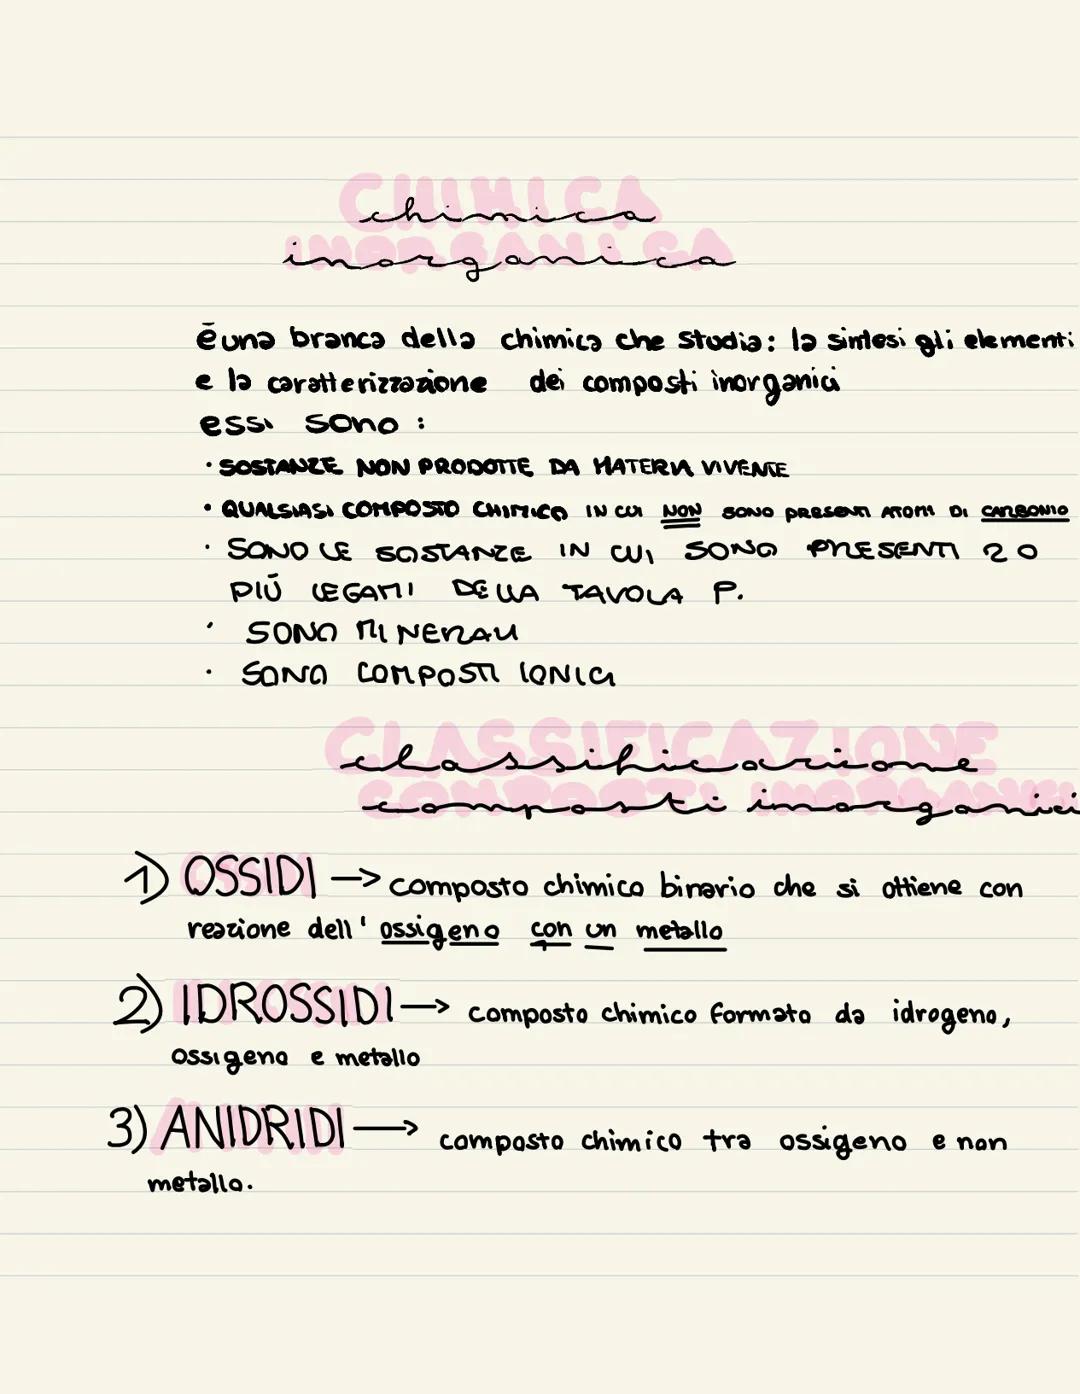 chimica
inorganica
é una branca della chimica che studia: la sintesi gli elementi
e la caratterizzazione dei composti inorganici
essi sono :
· SOSTANZE NON PRODOTTE DA MATERIA VIVENTE
· QUALSIASI COMPOSTO CHIMICO IN CUI NON SONO PRESENTI ATOMI DI CARBONIO
· SONO LE SOSTANZE IN CUI SONO PRESENTI 2 O
PIÚ LEGAMI DELLA TAVOLA P.
· SONO MINERALI
· SONO COMPOSTI IONICI
classificazione
composti inorganici
1) OSSIDI → composto chimico binario che si ottiene con
reazione dell' ossigeno con un metallo
2) IDROSSIDI → composto chimico formato da idrogeno,
ossigeno e metallo
3) ANIDRIDI → composto chimico tra ossigeno e non
metallo.